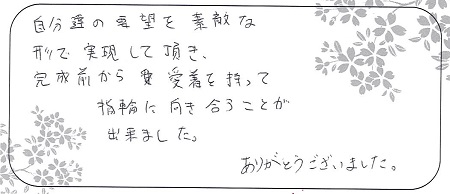 自分達の要望を素敵な
形で実現して頂き、
完成前から愛着を持って
指輪に向き合うことが
出来ました。
ありがとうございました。